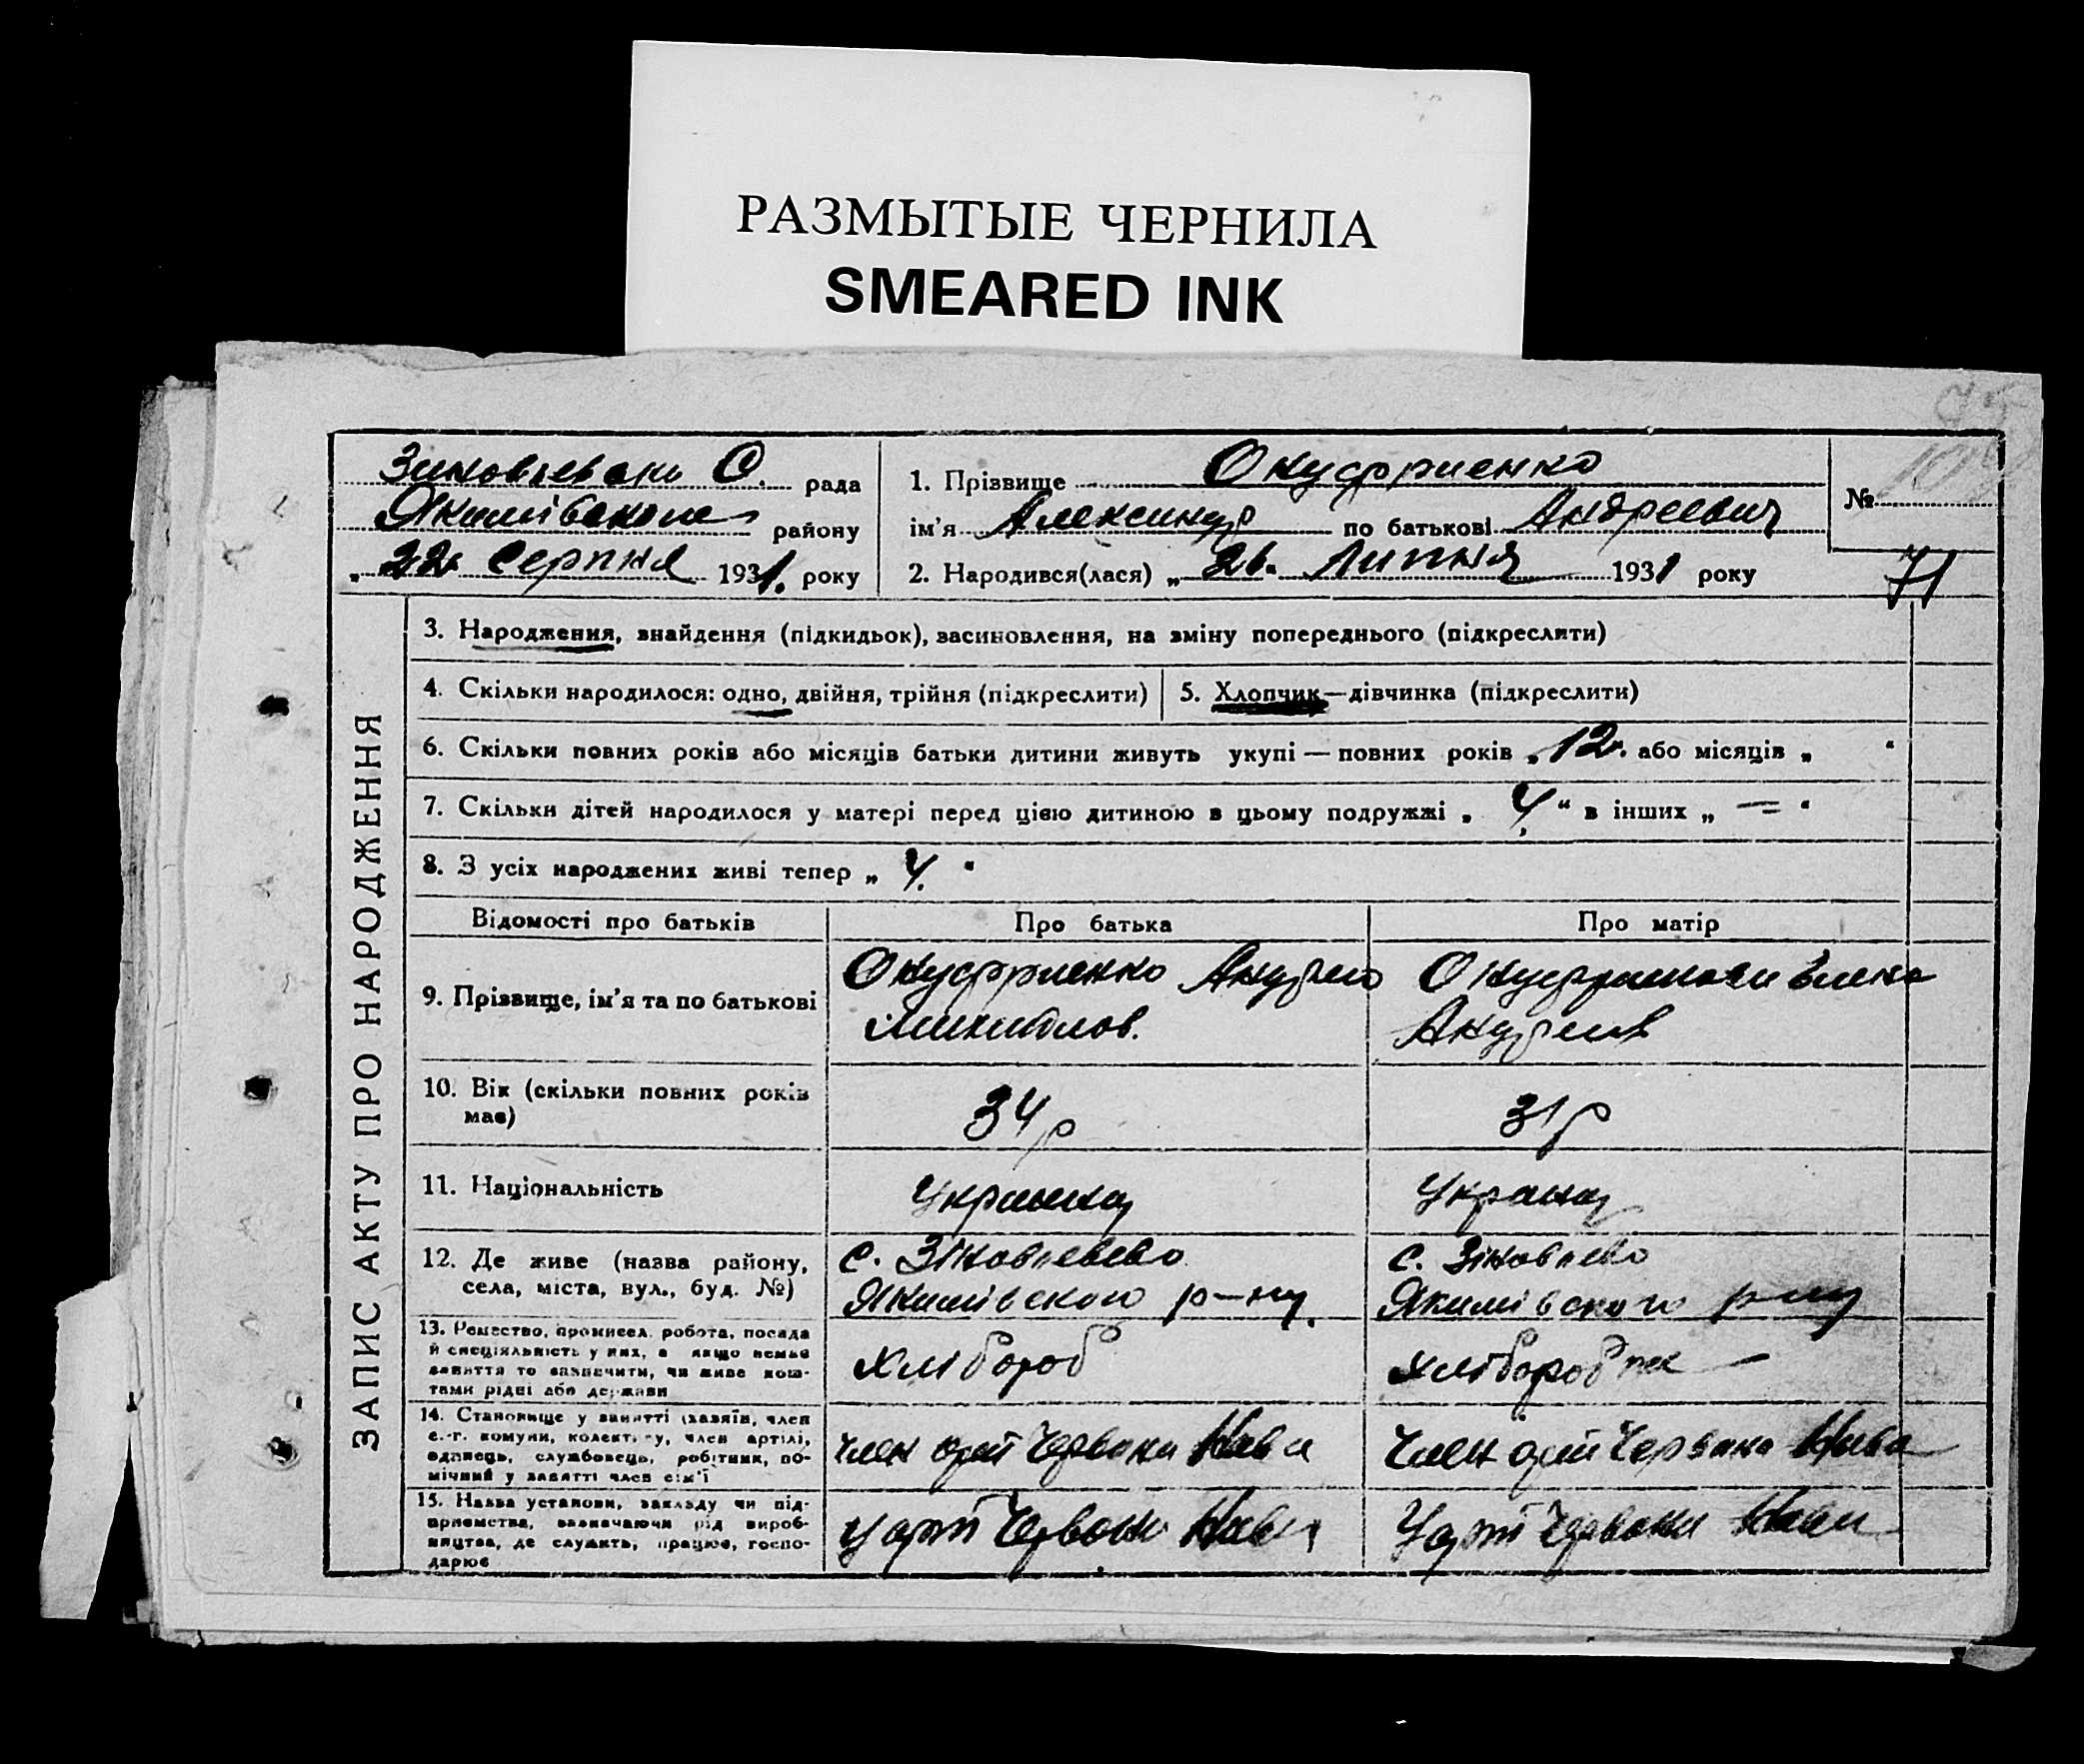 РАЗМЫТЫЕ ЧЕРНИЛА
SMEARED INK
С. рада
Якимівського району
„22. Серпня 1931. року
1. Прізвище Онуфриенко
ім'я Александр по батькові Андреевич
2. Народився(лася) „26. Липня 1931 року
№
71
ЗАПИС АКТУ ПРО НАРОДЖЕННЯ
3. Народження, знайдення (підкидьок), засиновлення, на зміну попереднього (підкреслити)
4. Скільки народилося: одно, двійня, трійня (підкреслити)
5. Хлопчик—дівчинка (підкреслити)
6. Скільки повних років або місяців батьки дитини живуть укупі — повних років „12. або місяців „ “
7. Скільки дітей народилося у матері перед цією дитиною в цьому подружжі „ 4 “ в інших „ = “
8. З усіх народжених живі тепер „ 4. “
Відомості про батьків
Про батька
Про матір
9. Прізвище, ім'я та по батькові
Онуфриенко Андрей
Михайлов.
10. Вік (скільки повних років
має)
34 р
31 р
11. Національність
12. Де живе (назва району,
села, міста, вул., буд. №)
с.
Якимівського р-ну.
с. Зіновьево
Якимівского р-ну
13. Ремество, промисел, робота, посада
й спеціяльність у них, а якщо немає
заняття то зазначити, чи живе кош-
тами рідні або держави
хлібороб
14. Становище у занятті (хазяїн, член
с.-г. комуни, колективу, член артілі,
одинець, службовець, робітник, по-
мічний у занятті член сім'ї
член арті Червона Нива
член арті Червона Нива
15. Назва установи, закладу чи під-
приємства, зазначаючи рід вироб-
ництва, де служить, працює, госпо-
дарює
У арті Червони Ниви
У арті Червони Ниви